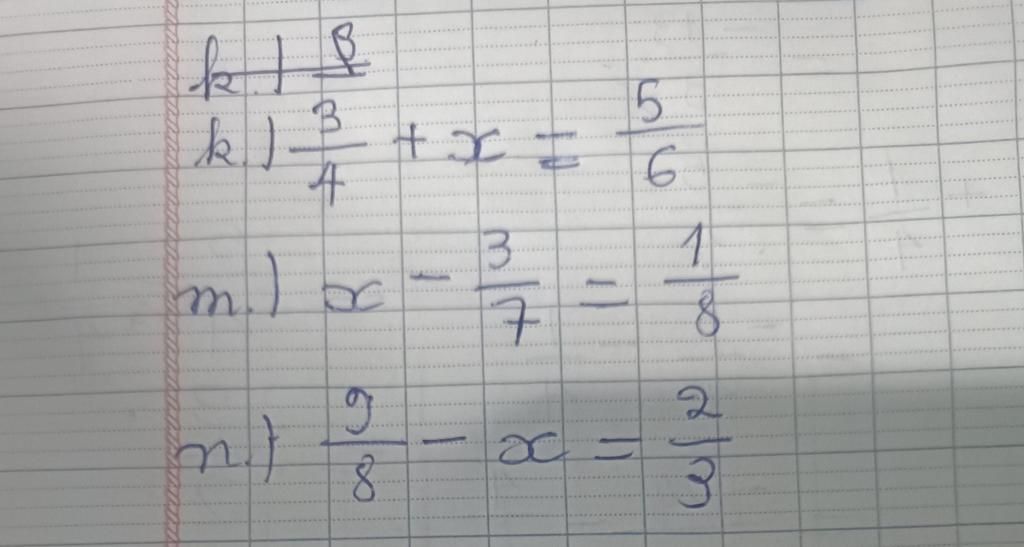 k.) 8
k.) 3/4 + x = 5/6
m.) x - 3/7 = 1/8
n.) 9/8 - x = 2/3